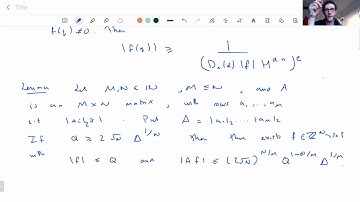 Title
f(q) ≠ 0. Then
|f(q)| ≥ 1
Lemma Let M, N ∈ ℕ, M ≤ N, and A
is an M × N matrix, with rows a₁, ..., aₘ
s.t. Put Δ = |a₁|₂ ... |aₘ|₂
If Q ≥ 2√N Δ^{1/N} then there exists f ∈ ℤ^N \ {0}
with |f| ≤ Q and |Af| ≤ (2√N)^{N/M} Q^{1-N/M} Δ^{1/M}